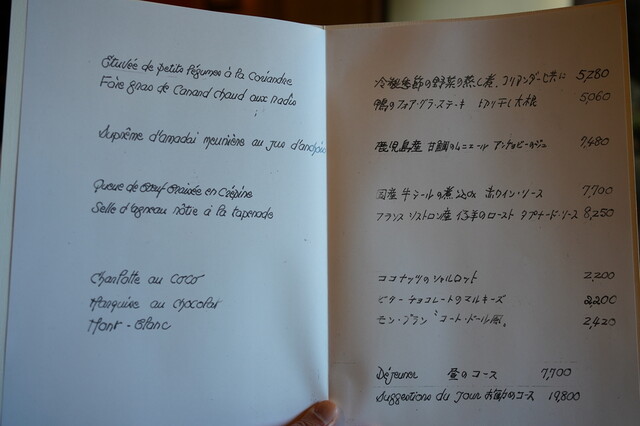 Étuvée de petits légumes à la Coriandre
Foie gras de Canard chaud aux radis
Suprême d'amadai meunière au jus d'anchois
Queue de Bœuf braisée en Crépine
Selle d'agneau rôtie à la tapenade
Charlotte au COCO
Marquise au chocolat
Mont-Blanc
季節の野菜の蒸し煮、コリアンダー 5,280
鴨のフォアグラ・ステーキ 大根 5,060
鹿児島産 甘鯛のムニエール アンチョビ・のジュ 7,480
国産牛テールの煮込み 赤ワイン・ソース 7,700
フランス シストロン産 仔羊のロースト タプナード・ソース 8,250
ココナッツのシャルロット 2,200
ビターチョコレートのマルキーズ 2,200
モン・ブラン コート・ドール風。 2,420
Déjeuner 昼のコース 7,700
Suggestions du Jour お勧めのコース 19,800